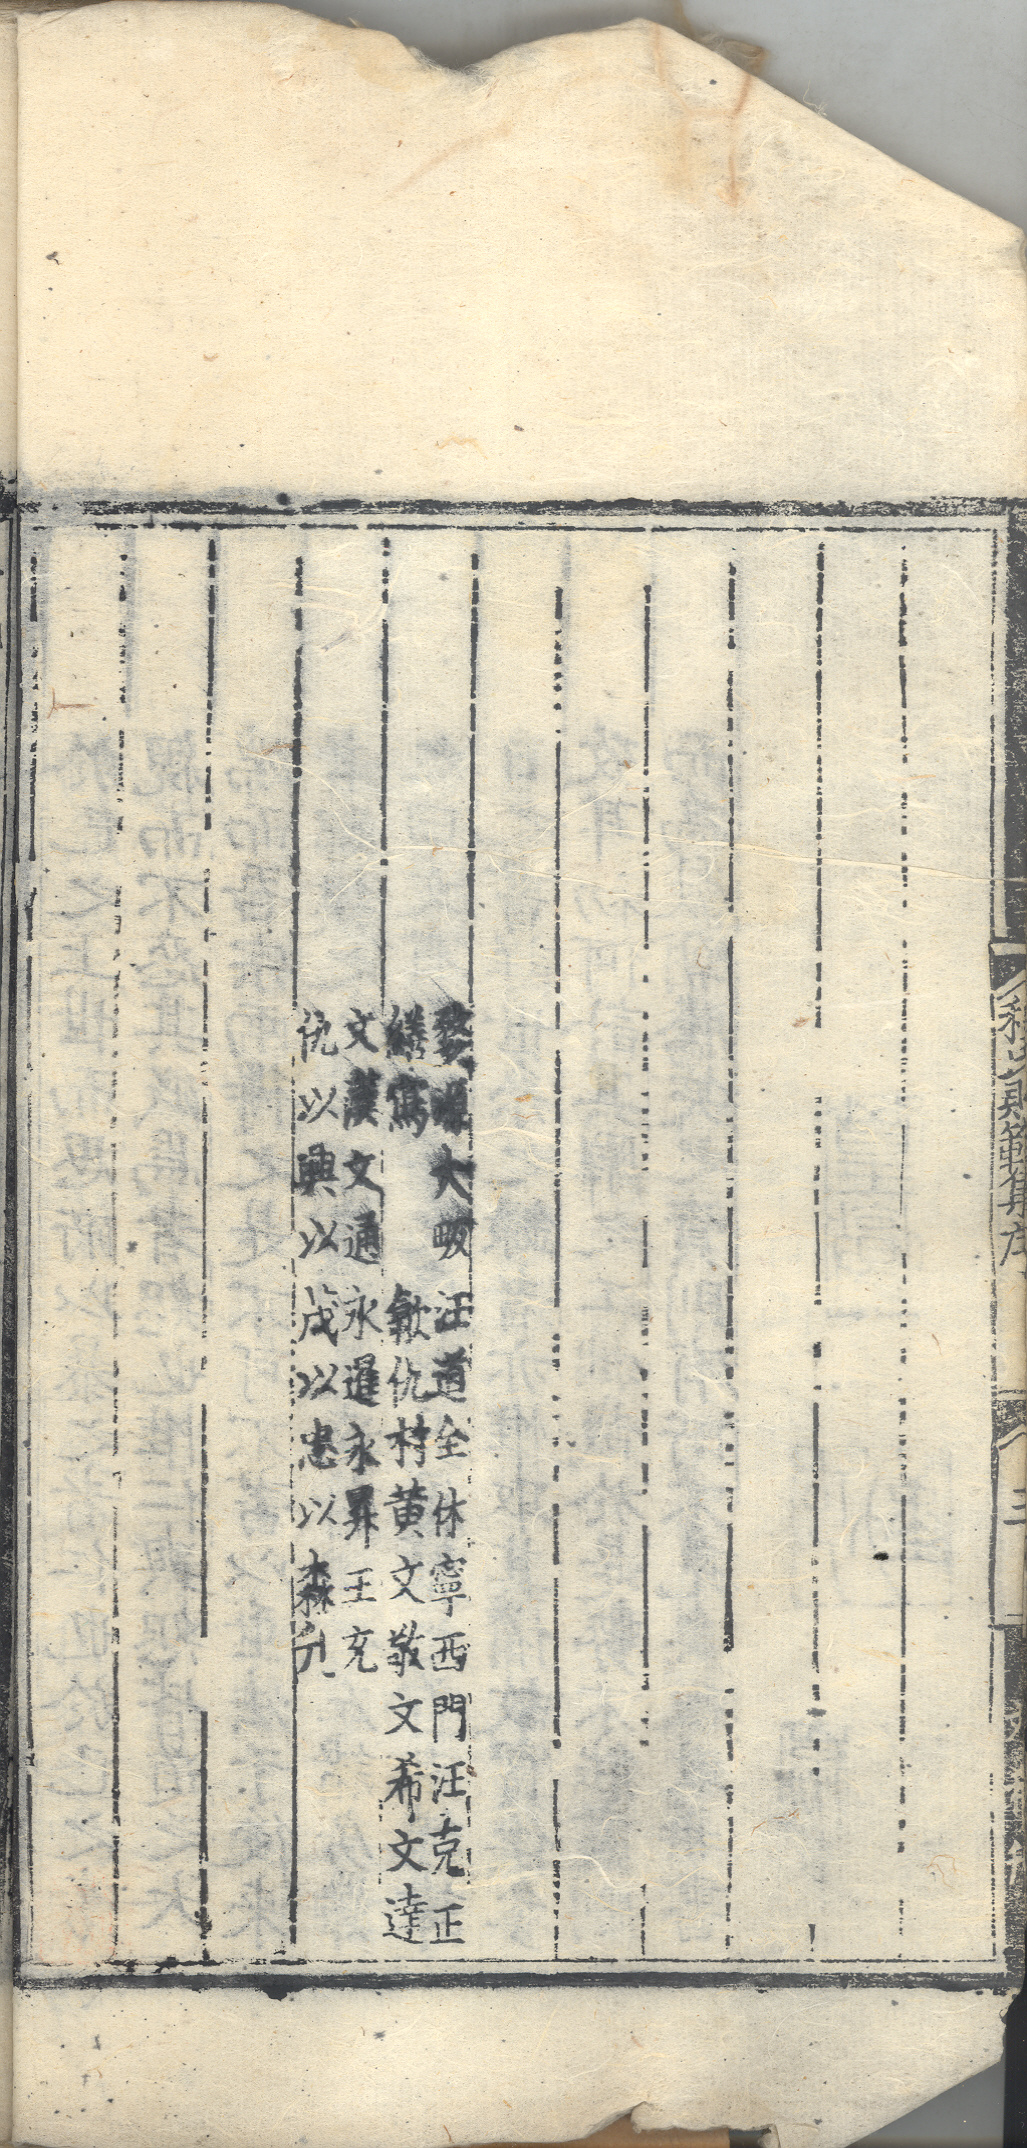 婺源大畈汪道全休寧西門汪克正
繕寫　歙仇村黄文敬文希文達
文漢文通永暹永昇王充
仇以興以茂以忠以森刊
和貞範集序
三